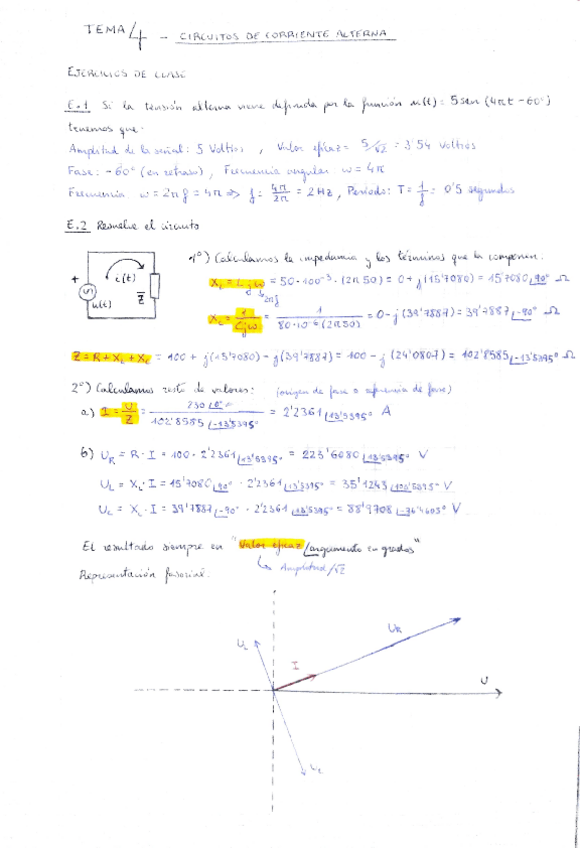 TEMA 4 - CIRCUITOS DE CORRIENTE ALTERNA
EJERCICIOS DE CLASE
E.1 Si la tensión alterna viene definida por la función u(t) = 5 sen (4πt - 60°)
tenemos que:
Amplitud de la señal: 5 Voltios , Valor eficaz = 5/√2 = 3'54 Voltios
Fase: -60° (en retraso) , Frecuencia angular: w = 4π
Frecuencia: w = 2πf = 4π => f = 4π/2π = 2 Hz , Periodo: T = 1/f = 0'5 segundos
E.2 Resuelve el circuito
+ i(t) u(t) Z
1º) Calculamos la impedancia y los términos que la componen.
XL = Ljw = 50·100⁻³ · (2π50) = 0 + j(15'7080) = 15'7080 |90° Ω
2πf
Xc = 1/Cjw = 1/80·10⁻⁶(2π50) = 0 - j(39'7887) = 39'7887 |-90° Ω
Z = R + XL + Xc = 100 + j(15'7080) - j(39'7887) = 100 - j(24'0807) = 102'8585 |-13'5395° Ω
2º) Calculamos resto de valores: (origen de fase o referencia de fase)
a) I = U/Z = 230 |0° / 102'8585 |-13'5395° = 2'2361 |13'5395° A
b) UR = R · I = 100 · 2'2361 |13'5395° = 223'6080 |13'5395° V
UL = XL · I = 15'7080 |90° · 2'2361 |13'5395° = 35'1243 |103'5395° V
Uc = Xc · I = 39'7887 |-90° · 2'2361 |13'5395° = 88'9708 |-76'4605° V
El resultado siempre en "Valor eficaz /argumento en grados"
Amplitud/√2
Representación fasorial:
UR
UL
I
U
Uc